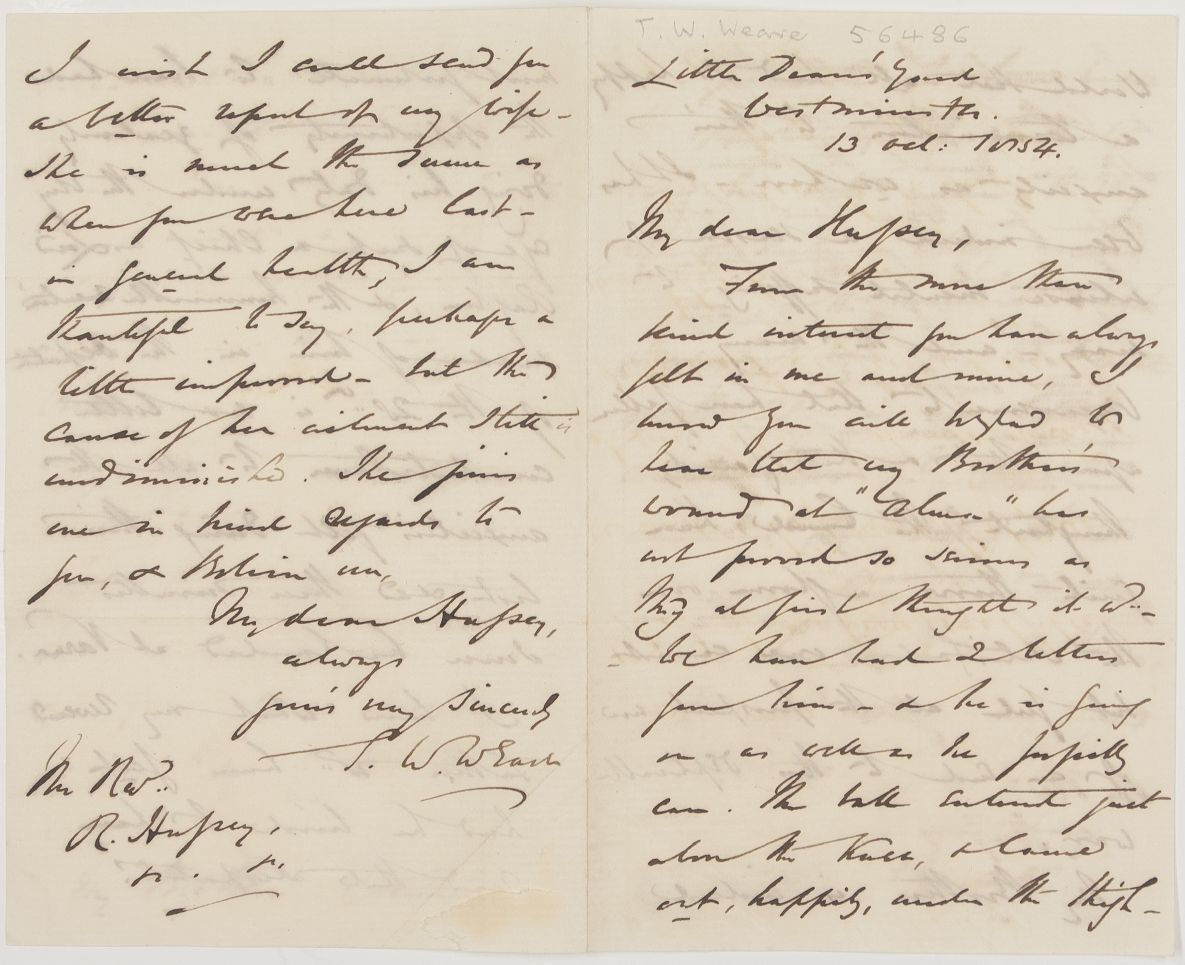 T. W. Weare 56486
Little Dean's Yard
Westminster.
13 Oct: 1854.
My dear Hussey,
From the more than
kind interest you have always
felt in me and mine, I
know you will be glad to
hear that my Brother's
wound at "Alma" has
not proved so serious as
they at first thought it wd. -
We have had 2 letters
from him - & he is going
on as well as he possibly
can. The ball entered just
above the knee, & came
out, happily, under the thigh -
I wish I could send you
a better report of my wife -
She is much the same as
when you were here last -
in general health, I am
thankful to say, perhaps a
little improved - but the
cause of her ailment still is
undiminished. She joins
me in kind regards to
you, & Believe me,
My dear Hussey,
always
yours very sincerely
T. W. Weare
The Revd.
R. Hussey,